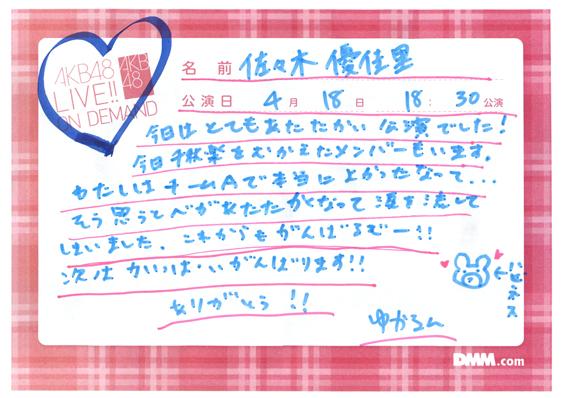 AKB48
LIVE!!
ON DEMAND
AKB
48
名 前 佐々木 優佳里
公演日 4月 18日 18:30公演
今日は とても あたたかい 公演でした!
今日 千秋楽を むかえた メンバーも います。
わたしは チームAで 本当に 上がったなって...
そう 思うと が あたたかくなって 涙を 流して
しまいました。 これからも がんばるむー!!
次は かいっぱい がんばります!!
ありがとう !!
ゆかるん
←ハピネス
DMM.com